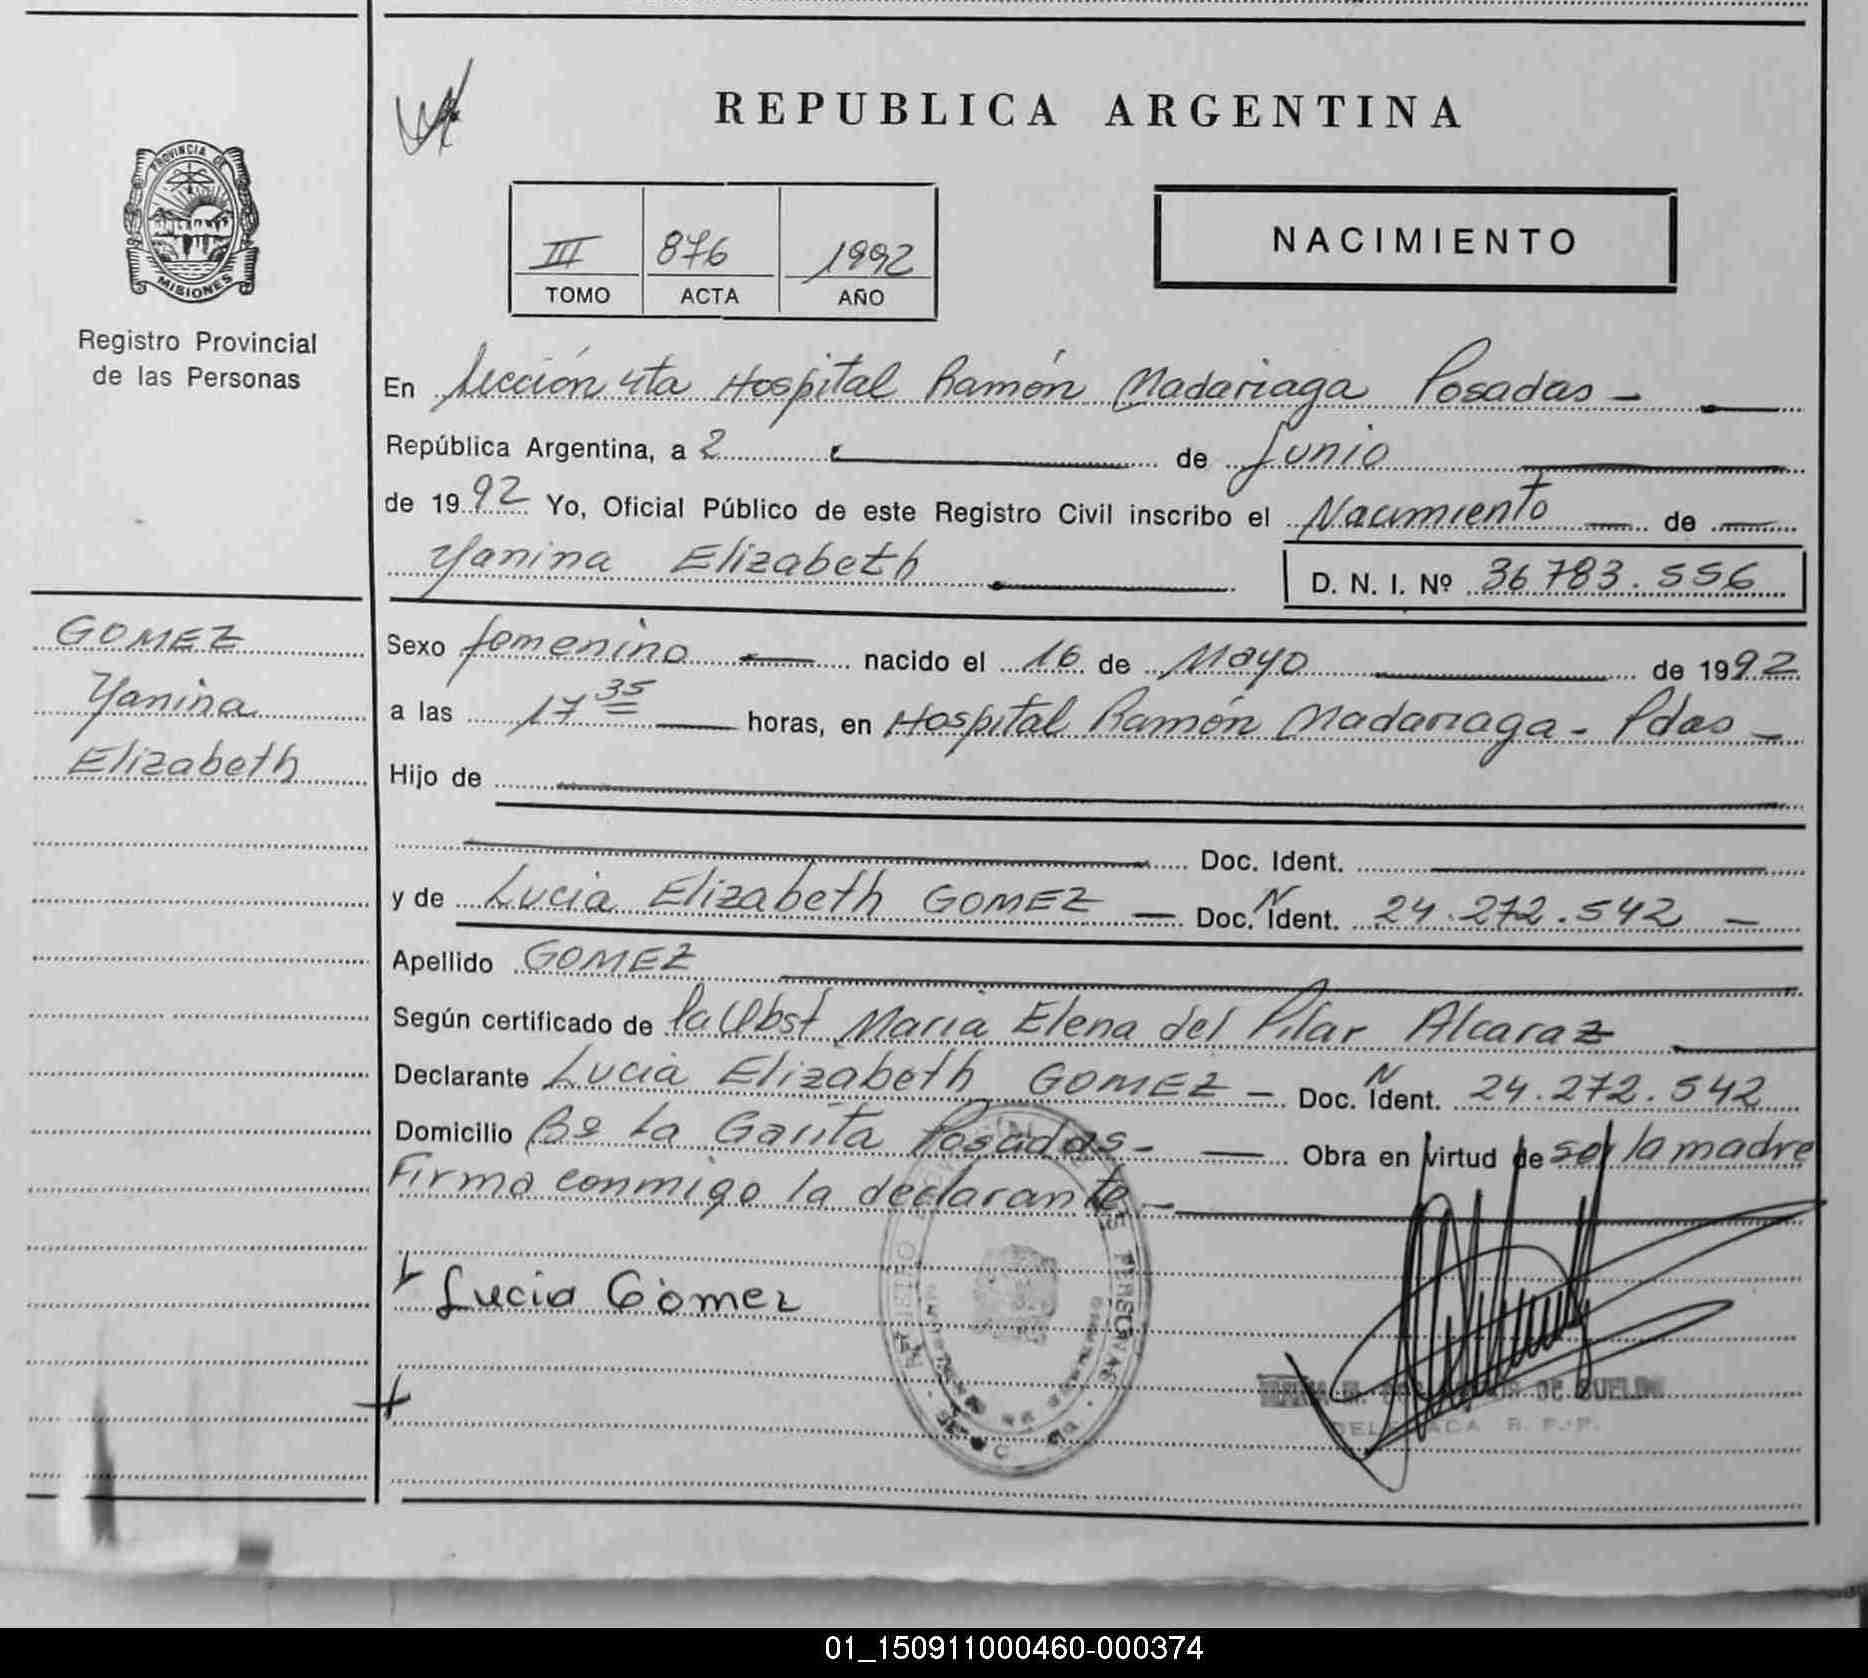 REPUBLICA ARGENTINA
PROVINCIA DE
MISIONES
Registro Provincial
de las Personas
III 876 1992
TOMO ACTA AÑO
NACIMIENTO
En Sección 4ta Hospital Ramón Madariaga Posadas -
República Argentina, a 2 de Junio
de 1992 Yo, Oficial Público de este Registro Civil inscribo el Nacimiento de
Yanina Elizabeth
D. N. I. Nº 36783.556
GOMEZ
Yanina
Elizabeth
Sexo femenino nacido el 16 de Mayo de 1992
a las 17 35 horas, en Hospital Ramón Madariaga - Pdas -
Hijo de
Doc. Ident.
y de Lucia Elizabeth GOMEZ - Doc. N Ident. 24.272.542 -
Apellido GOMEZ
Según certificado de la Obst Maria Elena del Pilar Alcaraz
Declarante Lucia Elizabeth GOMEZ - Doc. N Ident. 24.272.542
Domicilio Bº La Garita Posadas - Obra en virtud de ser la madre
Firma conmigo la declarante -
Lucia Gomez
01_150911000460-000374